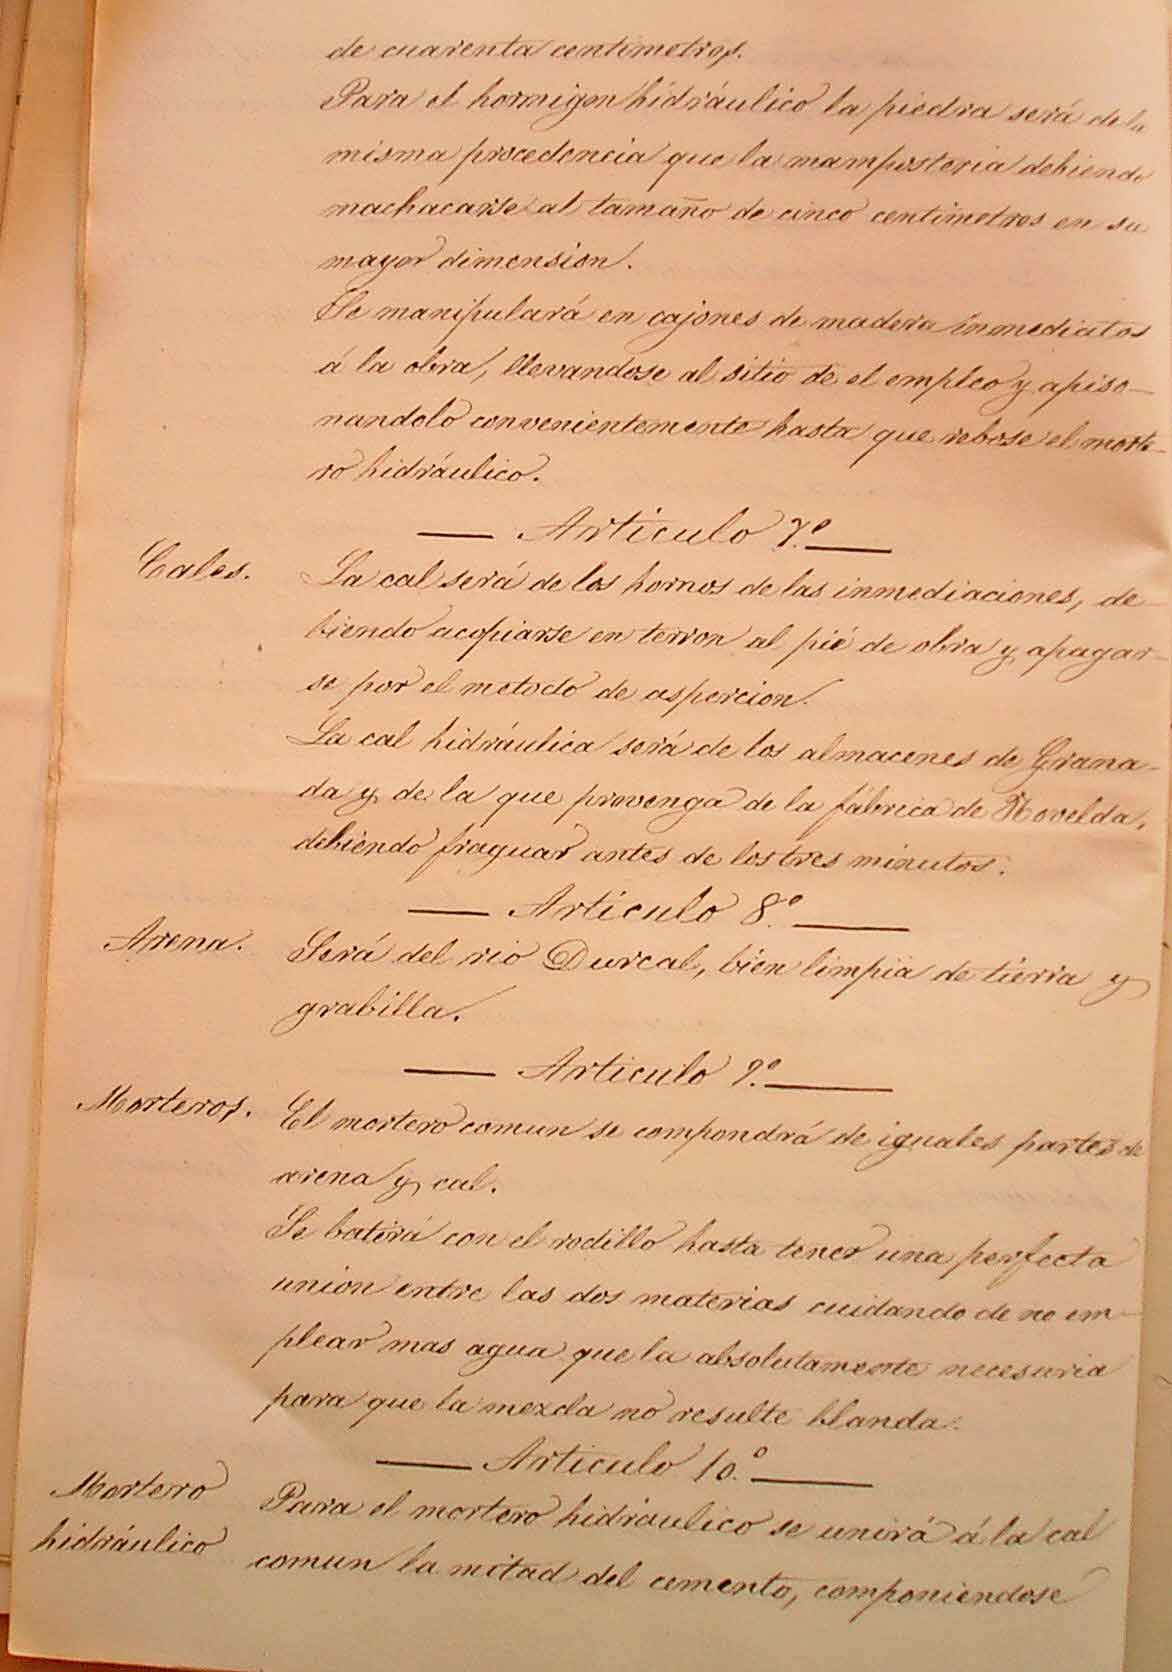 de cuarenta centimetros.
Para el hormigon hidráulico la piedra será de la
misma procedencia que la mamposteria debiendo
machacarse al tamaño de cinco centimetros en su
mayor dimension.
Se manipulará en cajones de madera inmediatos
á la obra, llevandose al sitio de el empleo y apiso-
nandolo convenientemente hasta que rebose el morte-
ro hidráulico.
— Articulo 7.º —
Cales. La cal será de los hornos de las inmediaciones, de-
biendo acopiarse en terron al pié de obra y apagar-
se por el metodo de aspercion.
La cal hidráulica será de los almacenes de Grana-
da y de la que provenga de la fabrica de Novelda,
debiendo fraguar antes de los tres minutos.
— Articulo 8.º —
Arena. Será del rio Durcal, bien limpia de tierra y
grabilla.
— Articulo 9.º —
Morteros. El mortero comun se compondrá de iguales partes de
arena y cal.
Se batirá con el rodillo hasta tener una perfecta
union entre las dos materias cuidando de no em-
plear mas agua que la absolutamente necesaria
para que la mezcla no resulte blanda.
— Articulo 10.º —
Mortero Para el mortero hidráulico se unirá á la cal
hidráulico comun la mitad del cemento, componiendose